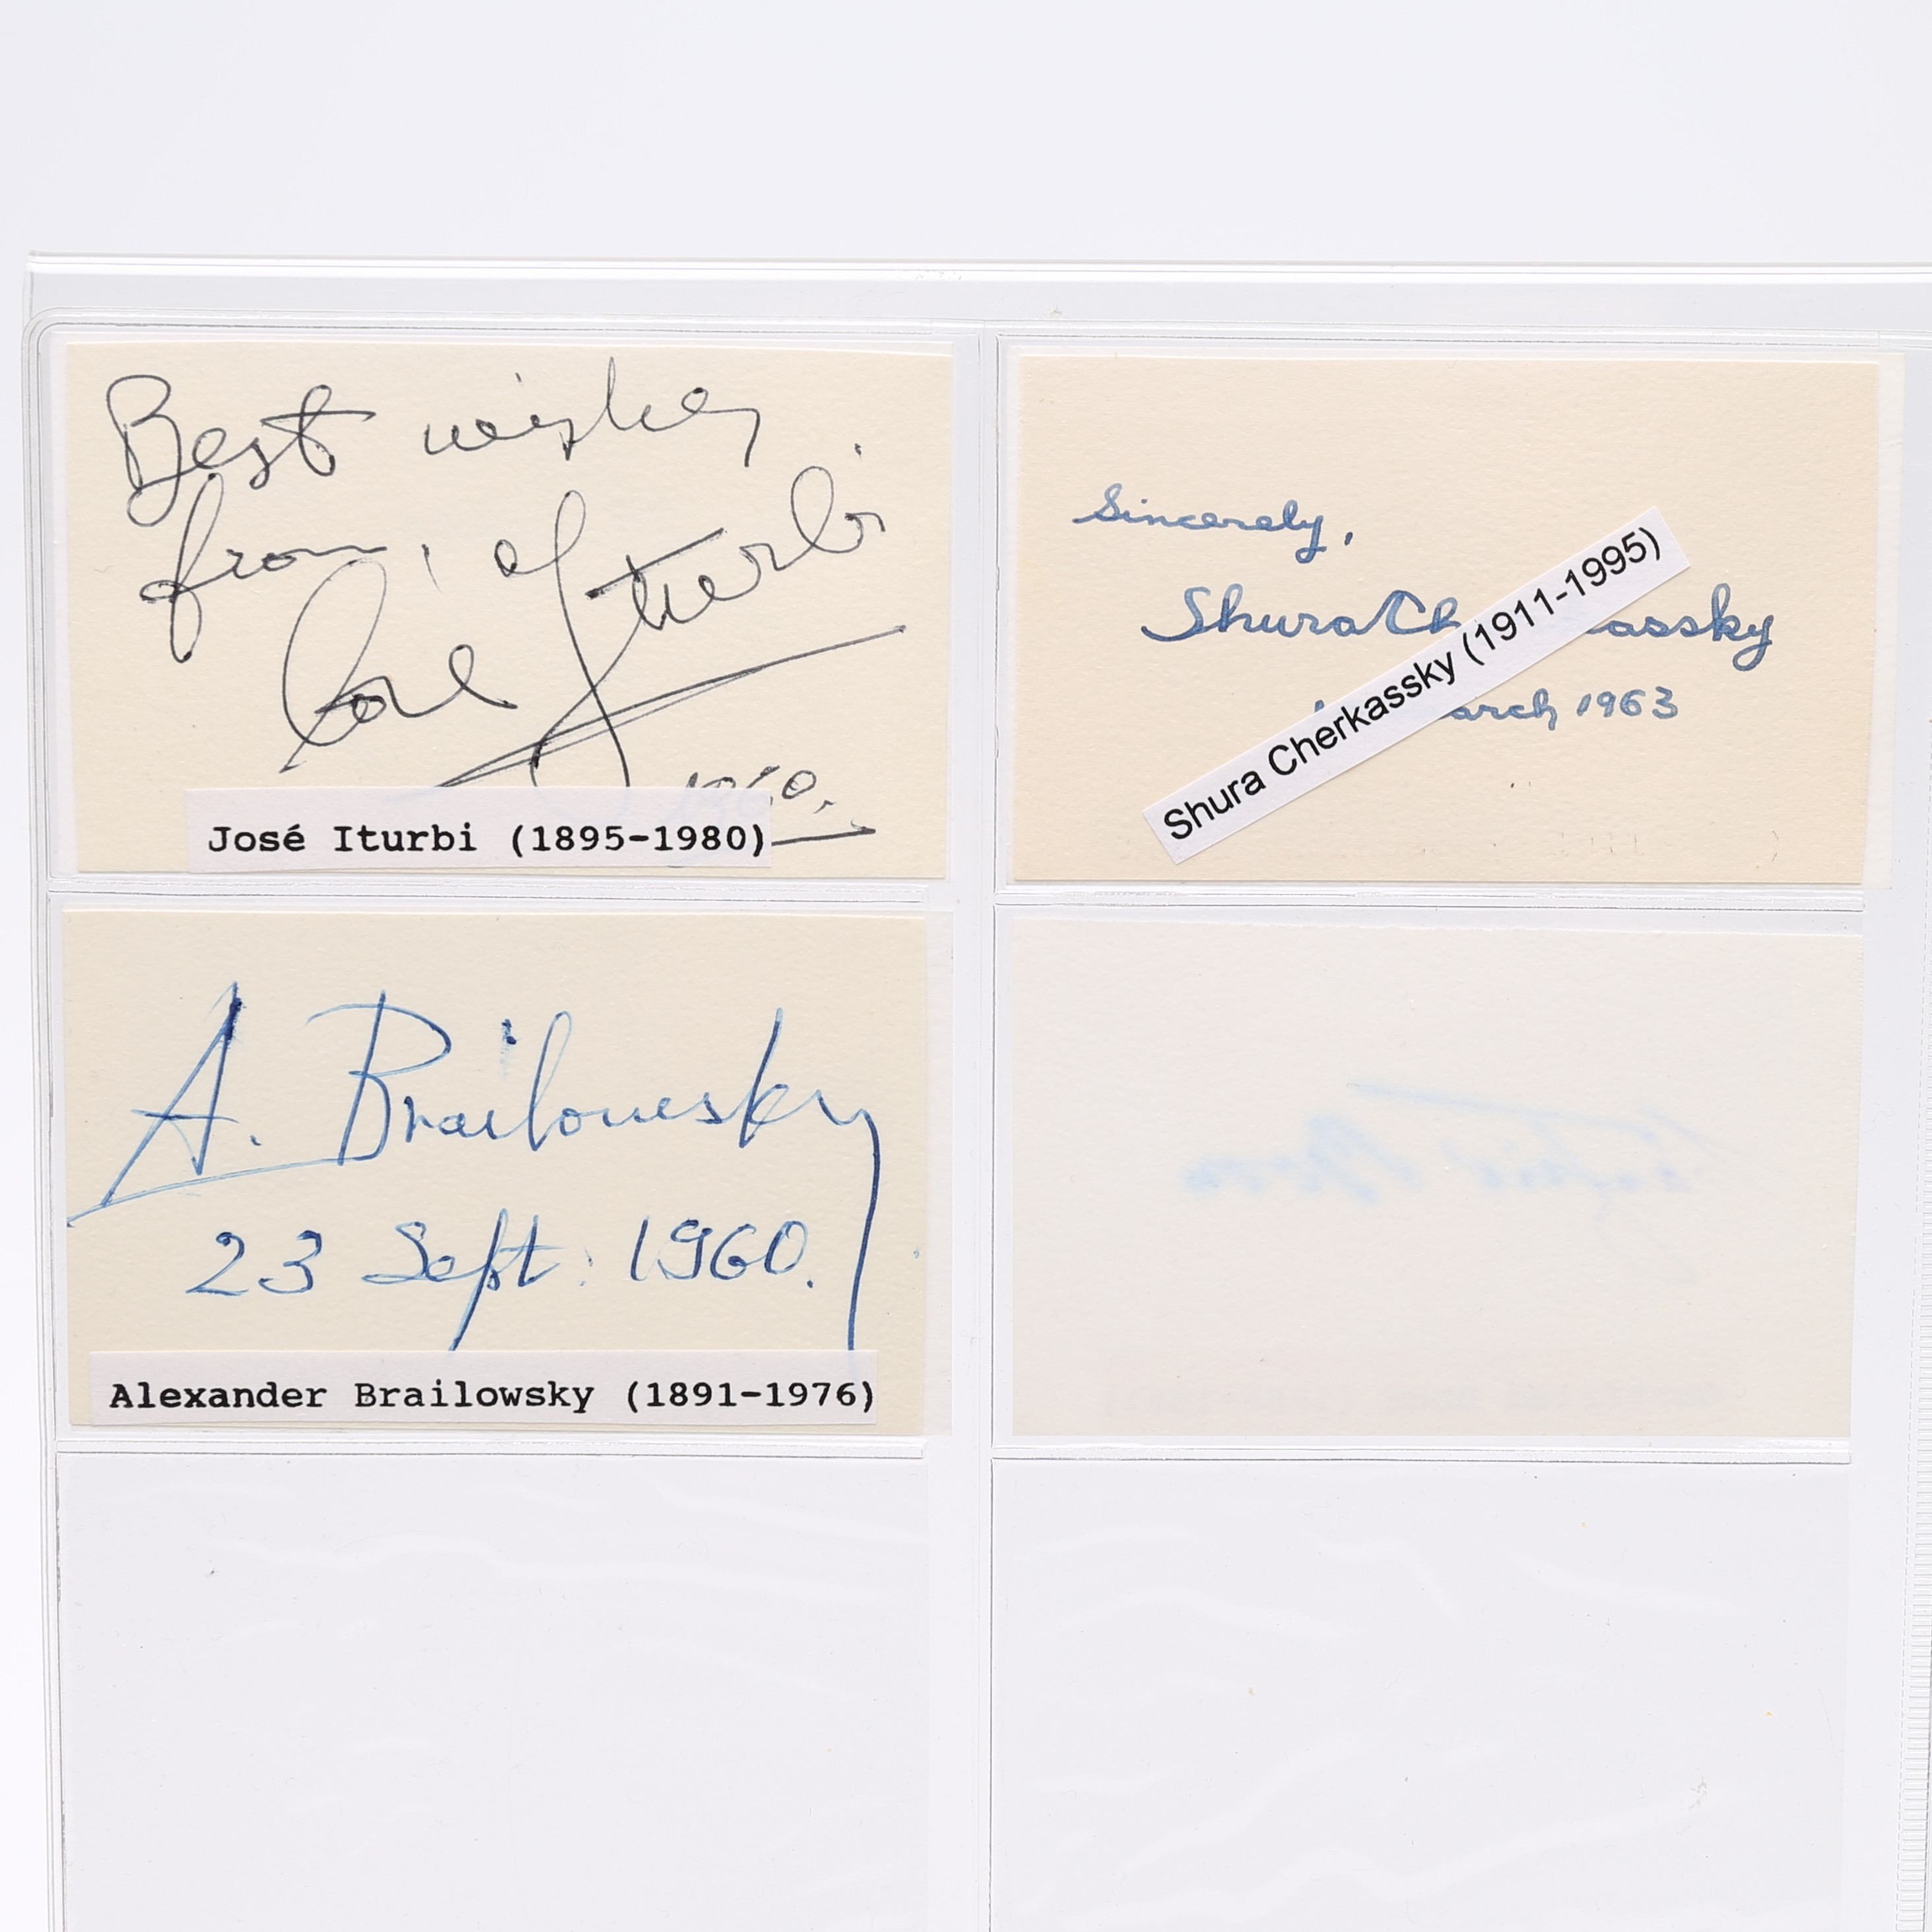 Best wishes
from
José Iturbi
José Iturbi (1895-1980)
Sincerely,
Shura Ch assky
arch 1963
Shura Cherkassky (1911-1995)
A. Brailowsky
23 Sept: 1960.
Alexander Brailowsky (1891-1976)